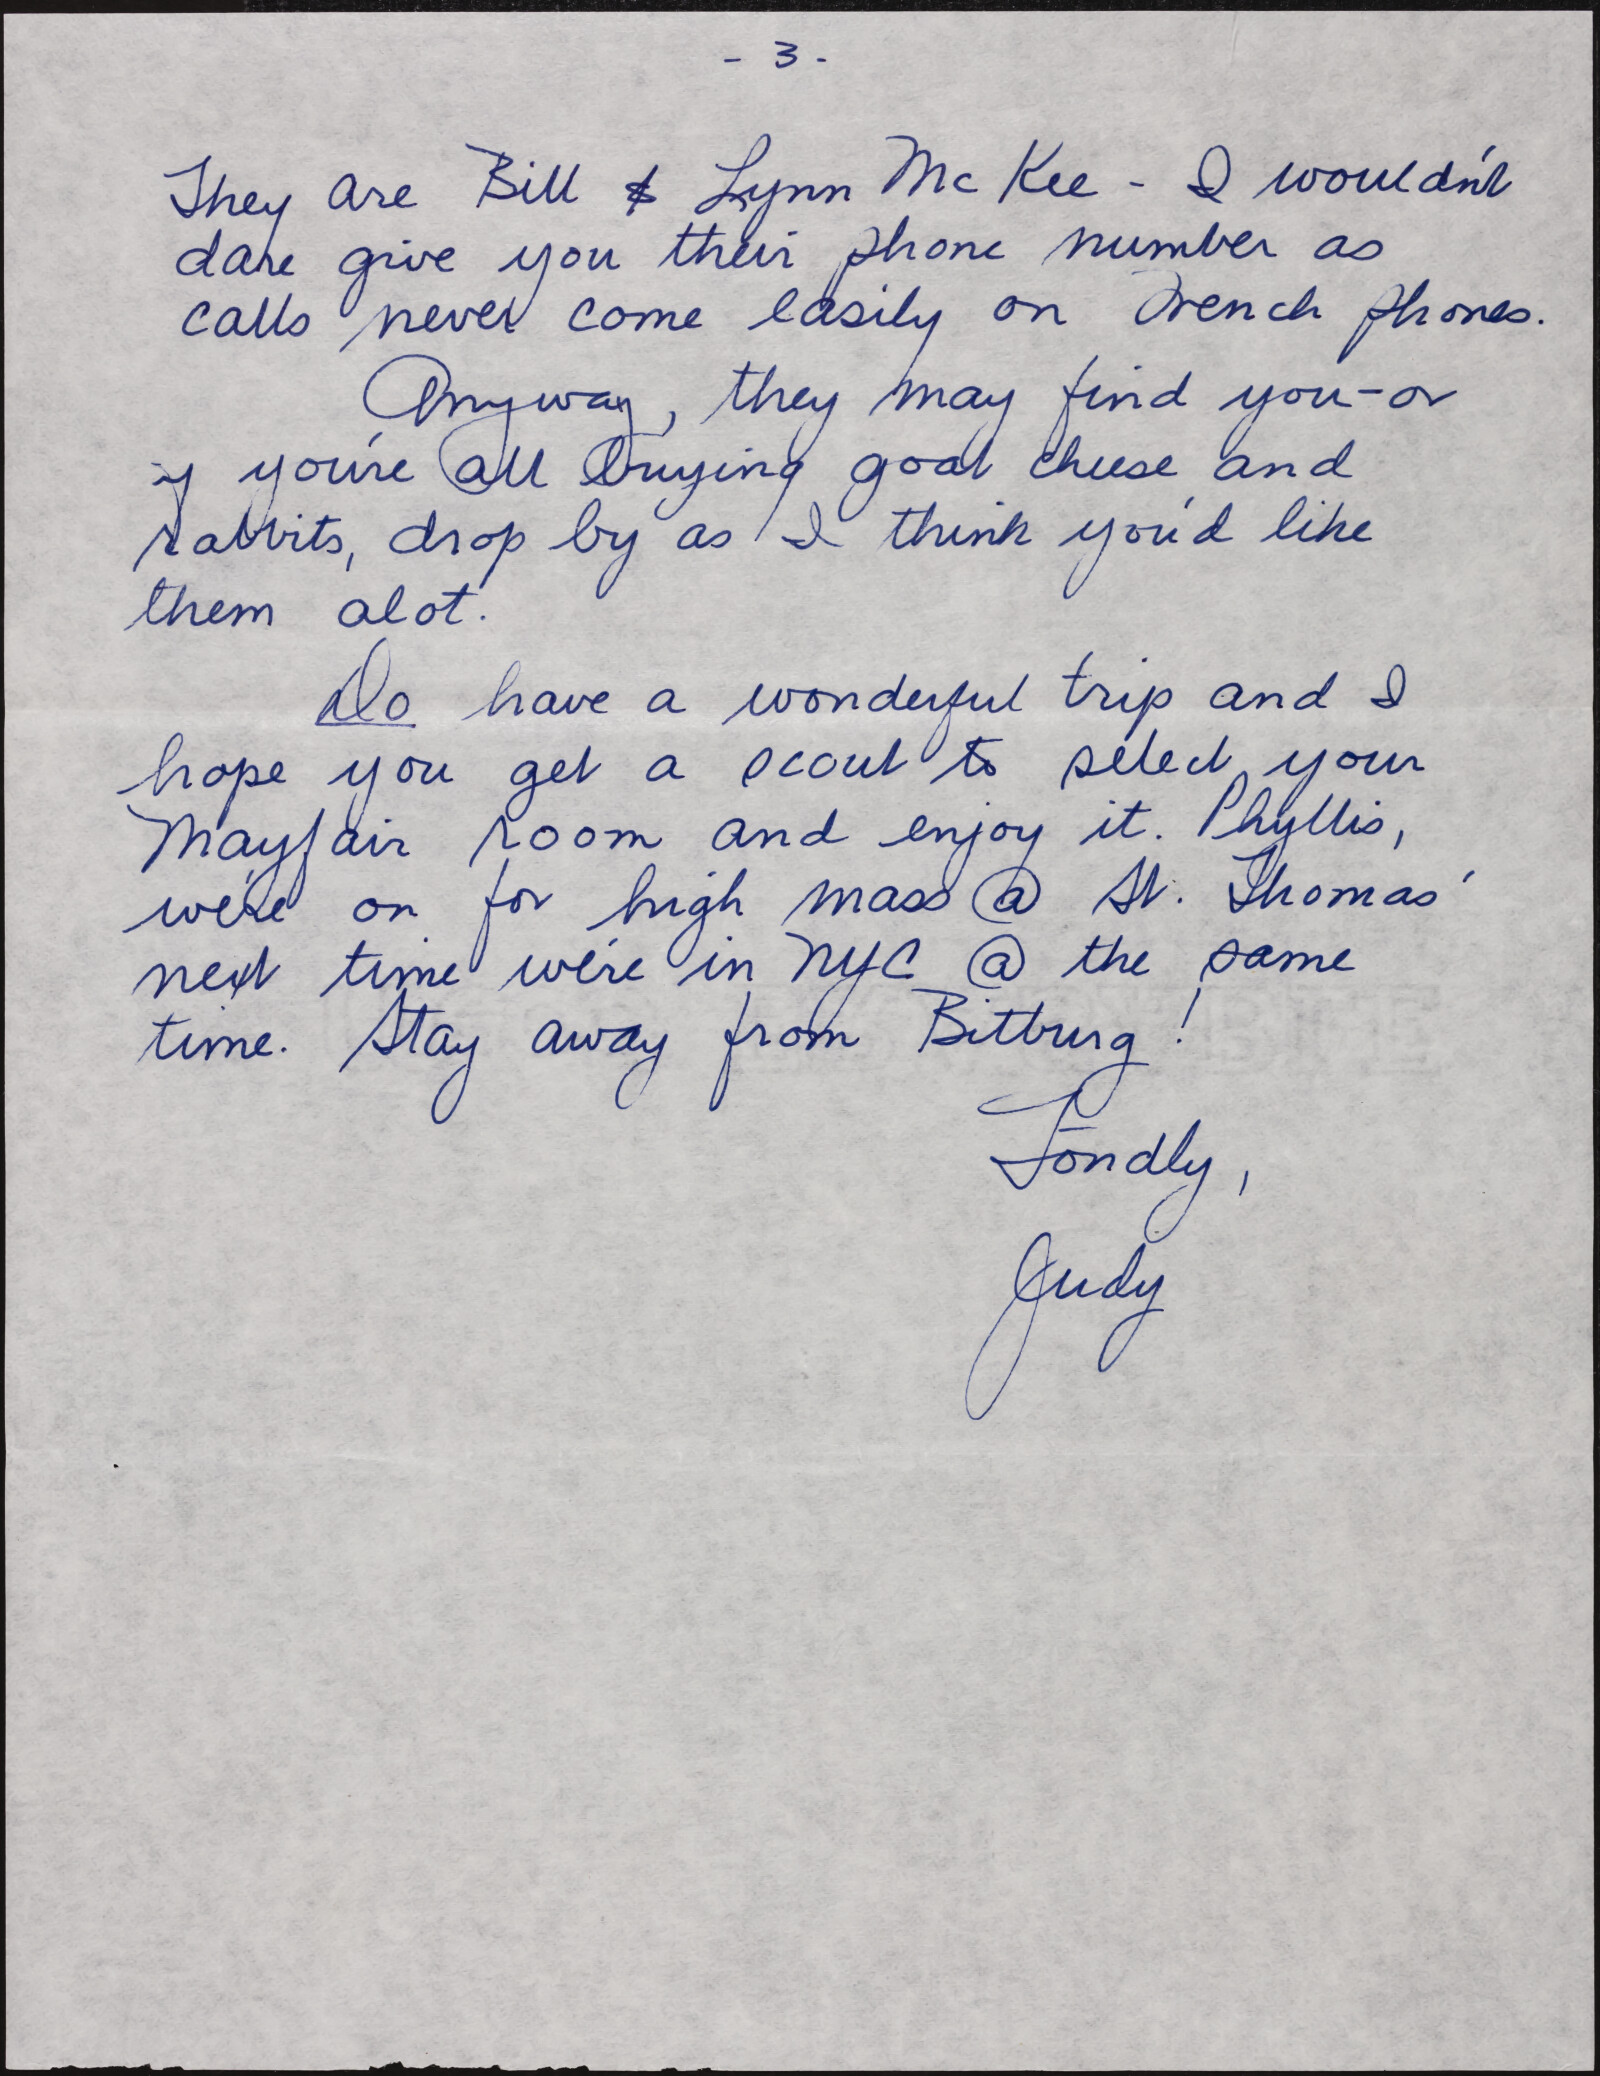 - 3 -
They are Bill & Lynn McKee - I wouldn't
dare give you their phone number as
calls never come easily on French phones.
Anyway, they may find you - or
if you're all buying goat cheese and
rabbits, drop by as I think you'd like
them alot.
Do have a wonderful trip and I
hope you get a scout to select your
Mayfair room and enjoy it. Phyllis,
we're on for high mass @ St. Thomas'
next time we're in NYC @ the same
time. Stay away from Bitburg!
Fondly,
Judy